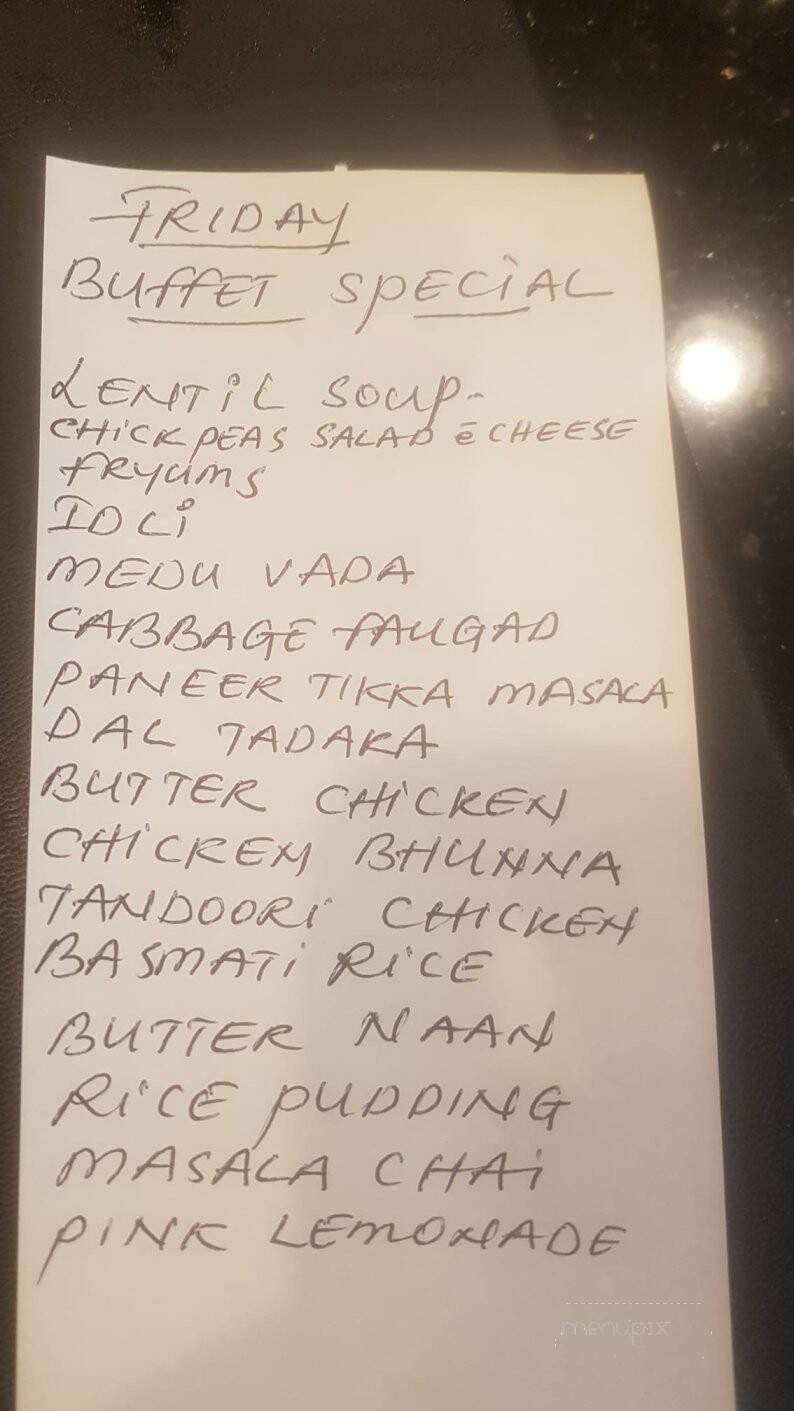 FRIDAY
BUFFET SPECIAL
LENTIL SOUP-
CHICKPEAS SALAD ē CHEESE
FRYUMS
IDLI
MEDU VADA
CABBAGE FAUGAD
PANEER TIKKA MASALA
DAL TADAKA
BUTTER CHICKEN
CHICKEN BHUNNA
TANDOORI CHICKEN
BASMATI RICE
BUTTER NAAN
RICE PUDDING
MASALA CHAI
PINK LEMONADE
menupix